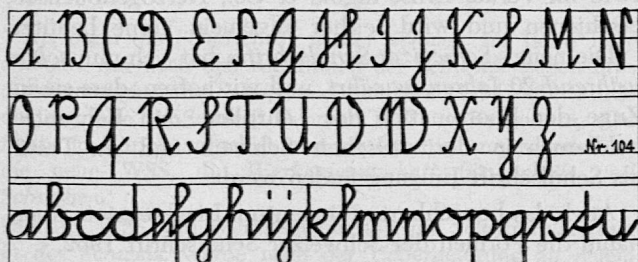 A B C D E F G H I J K L M N
O P Q R S T U V W X Y Z Nr. 104
abcdefghijklmnopqrstu